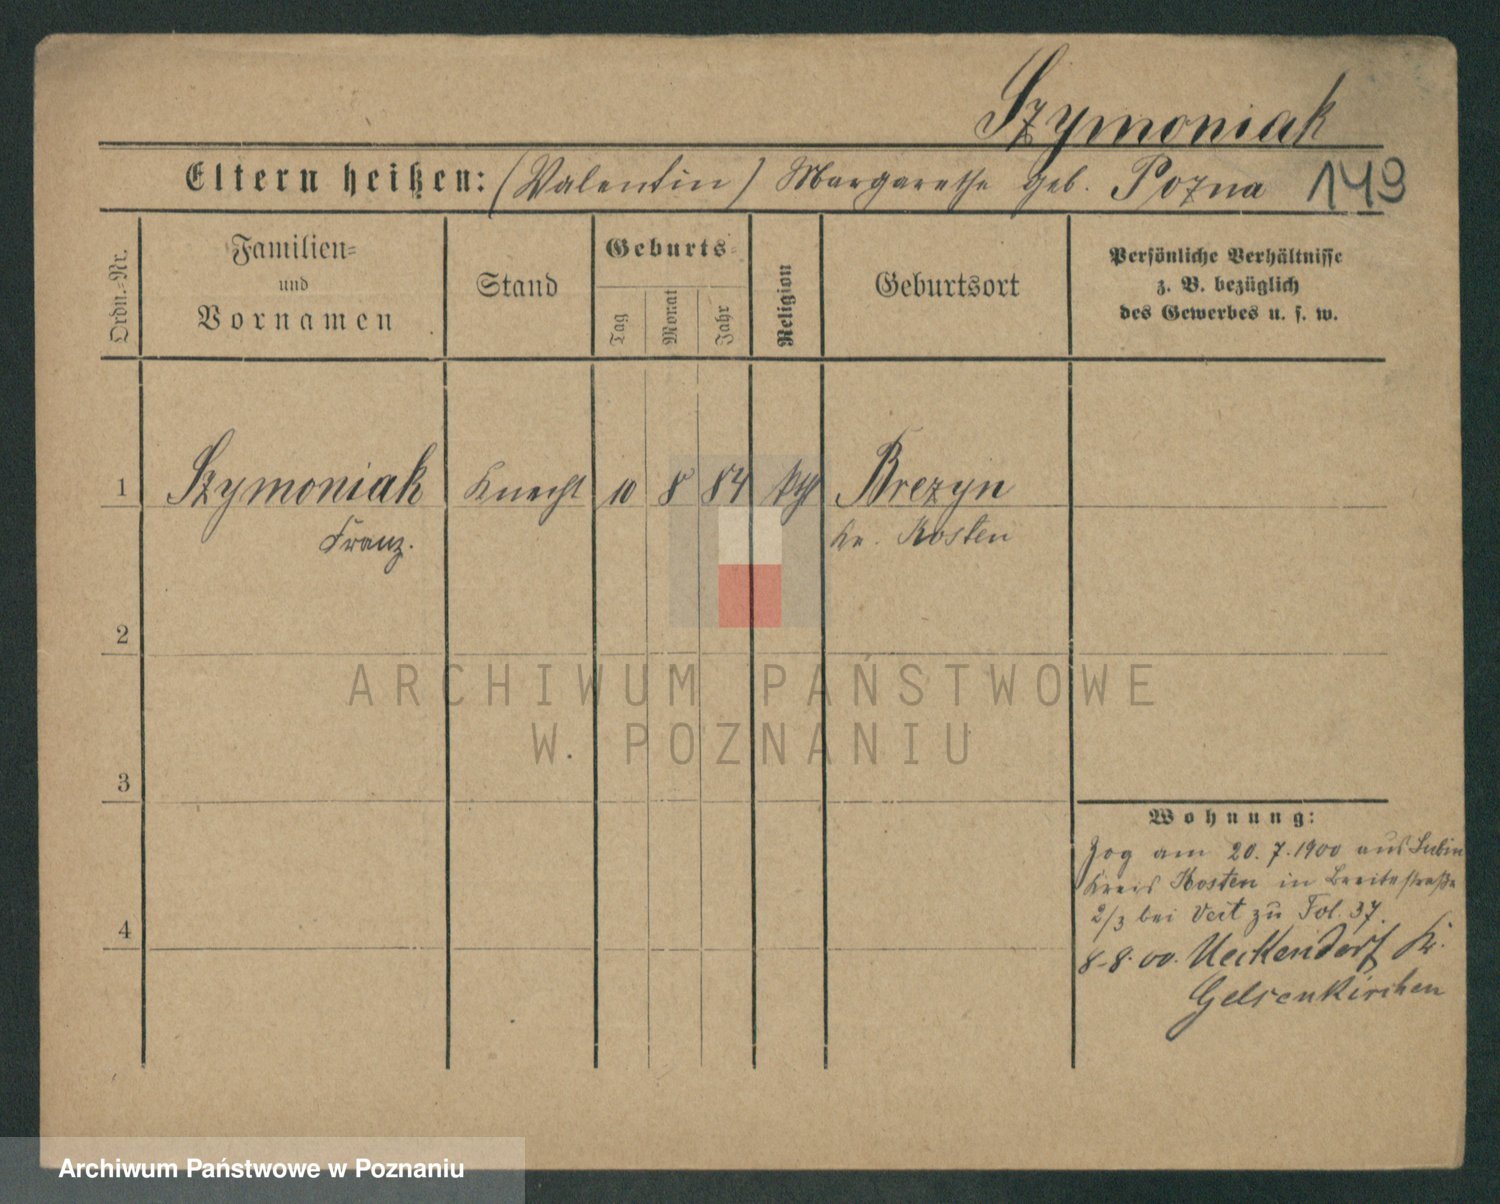 Szymoniak
Eltern heißen: (Valentin) Margarethe geb. Pozna 149
Ordn.-Nr.
Familien-
und
Vornamen
Stand
Geburts-
Tag
Monat
Jahr
Religion
Geburtsort
Persönliche Verhältnisse
z. B. bezüglich
des Gewerbes u. s. w.
1 Szymoniak Knecht 10 8 84 kth Brezyn
Franz. Kr. Kosten
2
3
4
Wohnung:
Zog am 20.7.1900 aus Lubin
Kreis Kosten in Breitestraße
2/3 bei Veit zu Fol. 37.
8-8.00. Ueckendorf Kr.
Gelsenkirchen
ARCHIWUM PAŃSTWOWE
W. POZNANIU
Archiwum Państwowe w Poznaniu